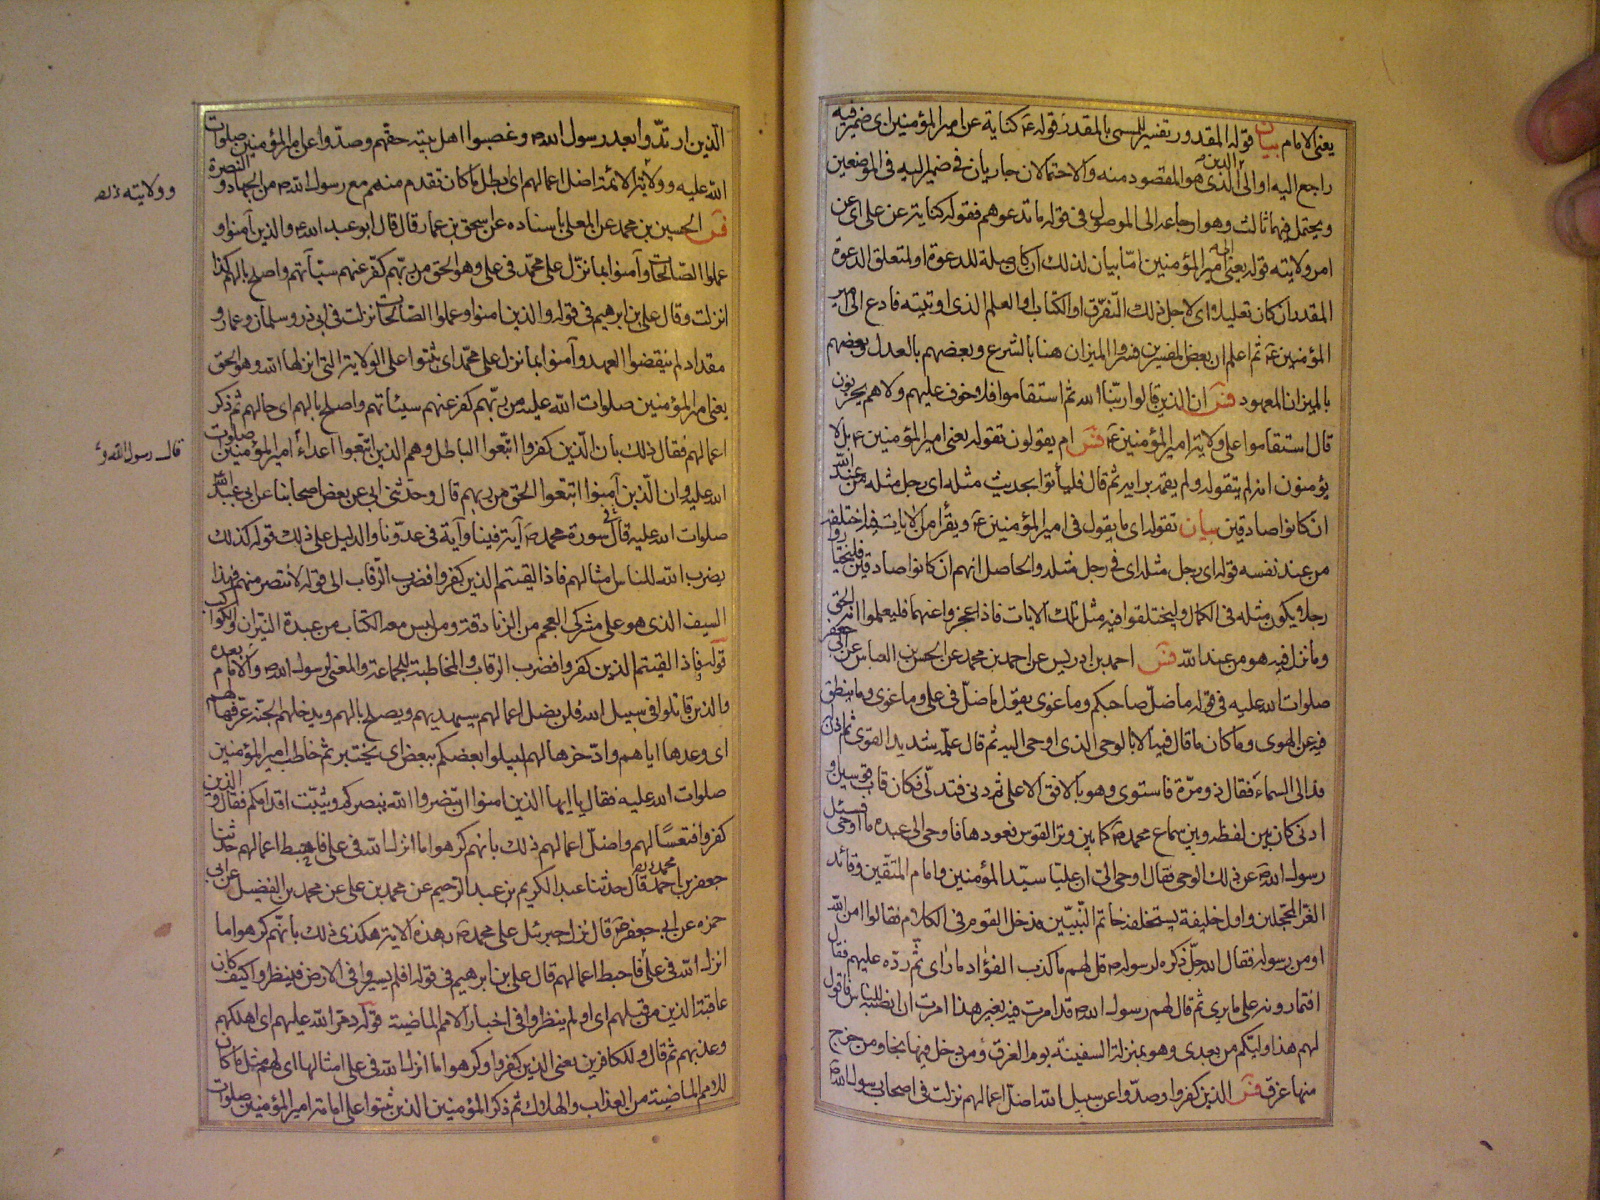 يعنى الامام بيان قوله المقدور تفسير للمسمى بالمقدر قوله ع كناية عن امير المؤمنين اى ضمير فيه
راجع اليه او الى الذى هو المقصود منه والاحتمالان جاريان فى ضمير اليه فى الموضعين
ويحتمل فيهما ثالث وهو ارجاعه الى الموصول فى قوله ما تدعوهم فقوله كناية عن على اى عن
امر ولايته قوله يعنى امير المؤمنين اما بيان لذلك ان كان صلة للدعوة او لمتعلق الدعوة
المقدر ان كان تعليلا اى لاجل ذلك التفرق او الكتاب او العلم الذى اوتيته فادع الى امير
المؤمنين ع ثم اعلم ان بعض المفسرين فسروا الميزان هنا بالشرع وبعضهم بالعدل وبعضهم
بالميزان المعهود فس ان الذين قالوا ربنا الله ثم استقاموا فلا خوف عليهم ولا هم يحزنون
قال استقاموا على ولاية امير المؤمنين ع فس ام يقولون تقوله يعنى امير المؤمنين ع بل لا
يؤمنون انه لم يتقوله ولم يقمه برأيه ثم قال فليأتوا بحديث مثله اى رجل مثله من عند الله
ان كانوا صادقين بيان تقوله اى ما يقول فى امير المؤمنين ع ويقرأ من الايات فيه اختلقه
من عند نفسه قوله اى رجل مثله اى فى رجل مثله والحاصل انهم ان كانوا صادقين فليختاروا
رجلا يكون مثله فى الكمال وليختلقوا فيه مثل تلك الايات فاذا عجزوا عنهما فليعلموا انه الحق
وما نزل فيه هو من عند الله فس احمد بن ادريس عن احمد بن محمد عن الحسين بن العباس عن ابى جعفر
صلوات الله عليه فى قوله ما ضل صاحبكم وما غوى يقول ما ضل فى على وما غوى وما ينطق
فيه عن الهوى وما كان ما قال فيه الا بالوحى الذى اوحى اليه ثم قال علمه شديد القوى ثم اذن
فى الى السماء فقال ذو مرة فاستوى وهو بالافق الاعلى ثم دنى فتدلى فكان قاب قوسين او
ادنى كان بين لفظه وبين سماع محمد ص كما بين وتر القوس وعودها فاوحى الى عبده ما اوحى فسئل
رسول الله ص عن ذلك الوحى فقال اوحى الى ان عليا سيد المؤمنين وامام المتقين وقائد
الغر المحجلين واول خليفة يستخلفه خاتم النبيين فدخل القوم فى الكلام فقالوا امن الله
او من رسوله فقال الله جل ذكره لرسوله ص قل لهم ما كذب الفؤاد ما رأى ثم رد عليهم فقال
افتمارونه على ما يرى ثم قال لهم رسول الله ص قد امرت فيه بغير هذا امرت ان انصبه للناس فاقول
لهم هذا وليكم من بعدى وهو بمنزلة السفينة يوم الغرق ومن دخل فيها نجا ومن خرج
منها غرق فس الذين كفروا وصدوا عن سبيل الله اضل اعمالهم نزلت فى اصحاب رسول الله ص
الذين ارتدوا بعد رسول الله ص وغصبوا اهل بيته حقهم وصدوا عن امير المؤمنين صلوات
الله عليه وولاية الائمة اضل اعمالهم اى بطل ما كان تقدم منهم مع رسول الله ص من الجهاد والنصرة
فس الحسين بن محمد عن المعلى باسناده عن اسحق بن عمار قال قال ابو عبد الله ع والذين آمنوا و
عملوا الصالحات وآمنوا بما نزل على محمد فى على وهو الحق من ربهم كفر عنهم سيئاتهم واصلح بالهم هكذا
انزلت وقال على بن ابرهيم فى قوله والذين امنوا وعملوا الصالحات نزلت فى ابى ذر وسلمان وعمار و
مقداد لم ينقضوا العهد وآمنوا بما نزل على محمد اى ثبتوا على الولاية التى انزلها الله وهو الحق
يعنى امير المؤمنين صلوات الله عليه من ربهم كفر عنهم سيئاتهم واصلح بالهم اى حالهم ثم ذكر
اعمالهم فقال ذلك بان الذين كفروا اتبعوا الباطل وهم الذين اتبعوا اعداء امير المؤمنين صلوات
الله عليه وان الذين آمنوا اتبعوا الحق من ربهم قال وحدثنى ابى عن بعض اصحابنا عن ابى عبد الله
صلوات الله عليه قال فى سورة محمد ص آية فينا وآية فى عدونا والدليل على ذلك قوله كذلك
يضرب الله للناس امثالهم فاذا لقيتم الذين كفروا فضرب الرقاب الى قوله لانتصر منهم فهذا
السيف الذى هو على مشركى العجم من الزنادقة ومن ليس معه الكتاب من عبدة النيران والكواكب
قوله فاذا لقيتم الذين كفروا فضرب الرقاب والمخاطبة للجماعة والمعنى لرسول الله ص والامام بعده
والذين قاتلوا فى سبيل الله فلن يضل اعمالهم سيهديهم ويصلح بالهم ويدخلهم الجنة عرفها لهم
اى وعدها اياهم وادخرها لهم ليبلوا بعضكم ببعض اى يختبر ثم خاطب امير المؤمنين
صلوات الله عليه فقال يا ايها الذين امنوا ان تنصروا الله ينصركم ويثبت اقدامكم فقال والذين
كفروا فتعسا لهم واضل اعمالهم ذلك بانهم كرهوا ما انزل الله فى على فاحبط اعمالهم حدثنا
جعفر بن احمد قال حدثنا عبد الكريم بن عبد الرحيم عن محمد بن على عن محمد بن الفضيل عن ابى
حمزه عن ابى جعفر ع قال نزل جبرئيل على محمد ص بهذه الاية هكذى ذلك بانهم كرهوا ما
انزل الله فى على فاحبط اعمالهم قال على بن ابرهيم فى قوله افلم يسيروا فى الارض فينظروا كيف كان
عاقبة الذين من قبلهم اى اولم ينظروا فى اخبار الامم الماضية قوله دمر الله عليهم اى اهلكهم
وعذبهم ثم قال وللكافرين يعنى الذين كفروا وكرهوا ما انزل الله فى على امثالها اى لهم مثل ما كان
للامم الماضية من العذاب والهلاك ثم ذكر المؤمنين الذين ثبتوا على امامة امير المؤمنين صلوات
وولايته
قال رسول الله